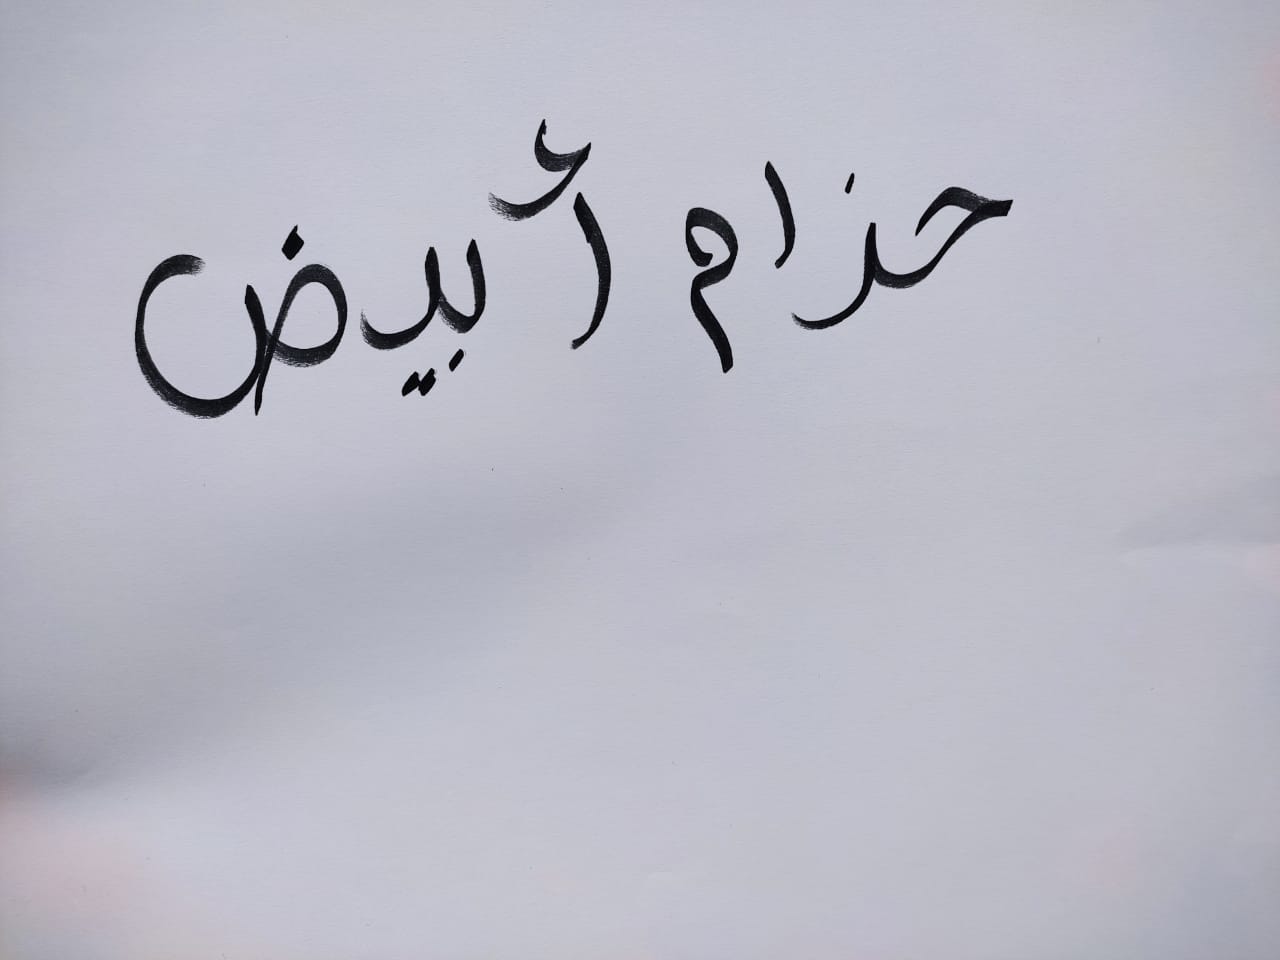 حزام أبيض